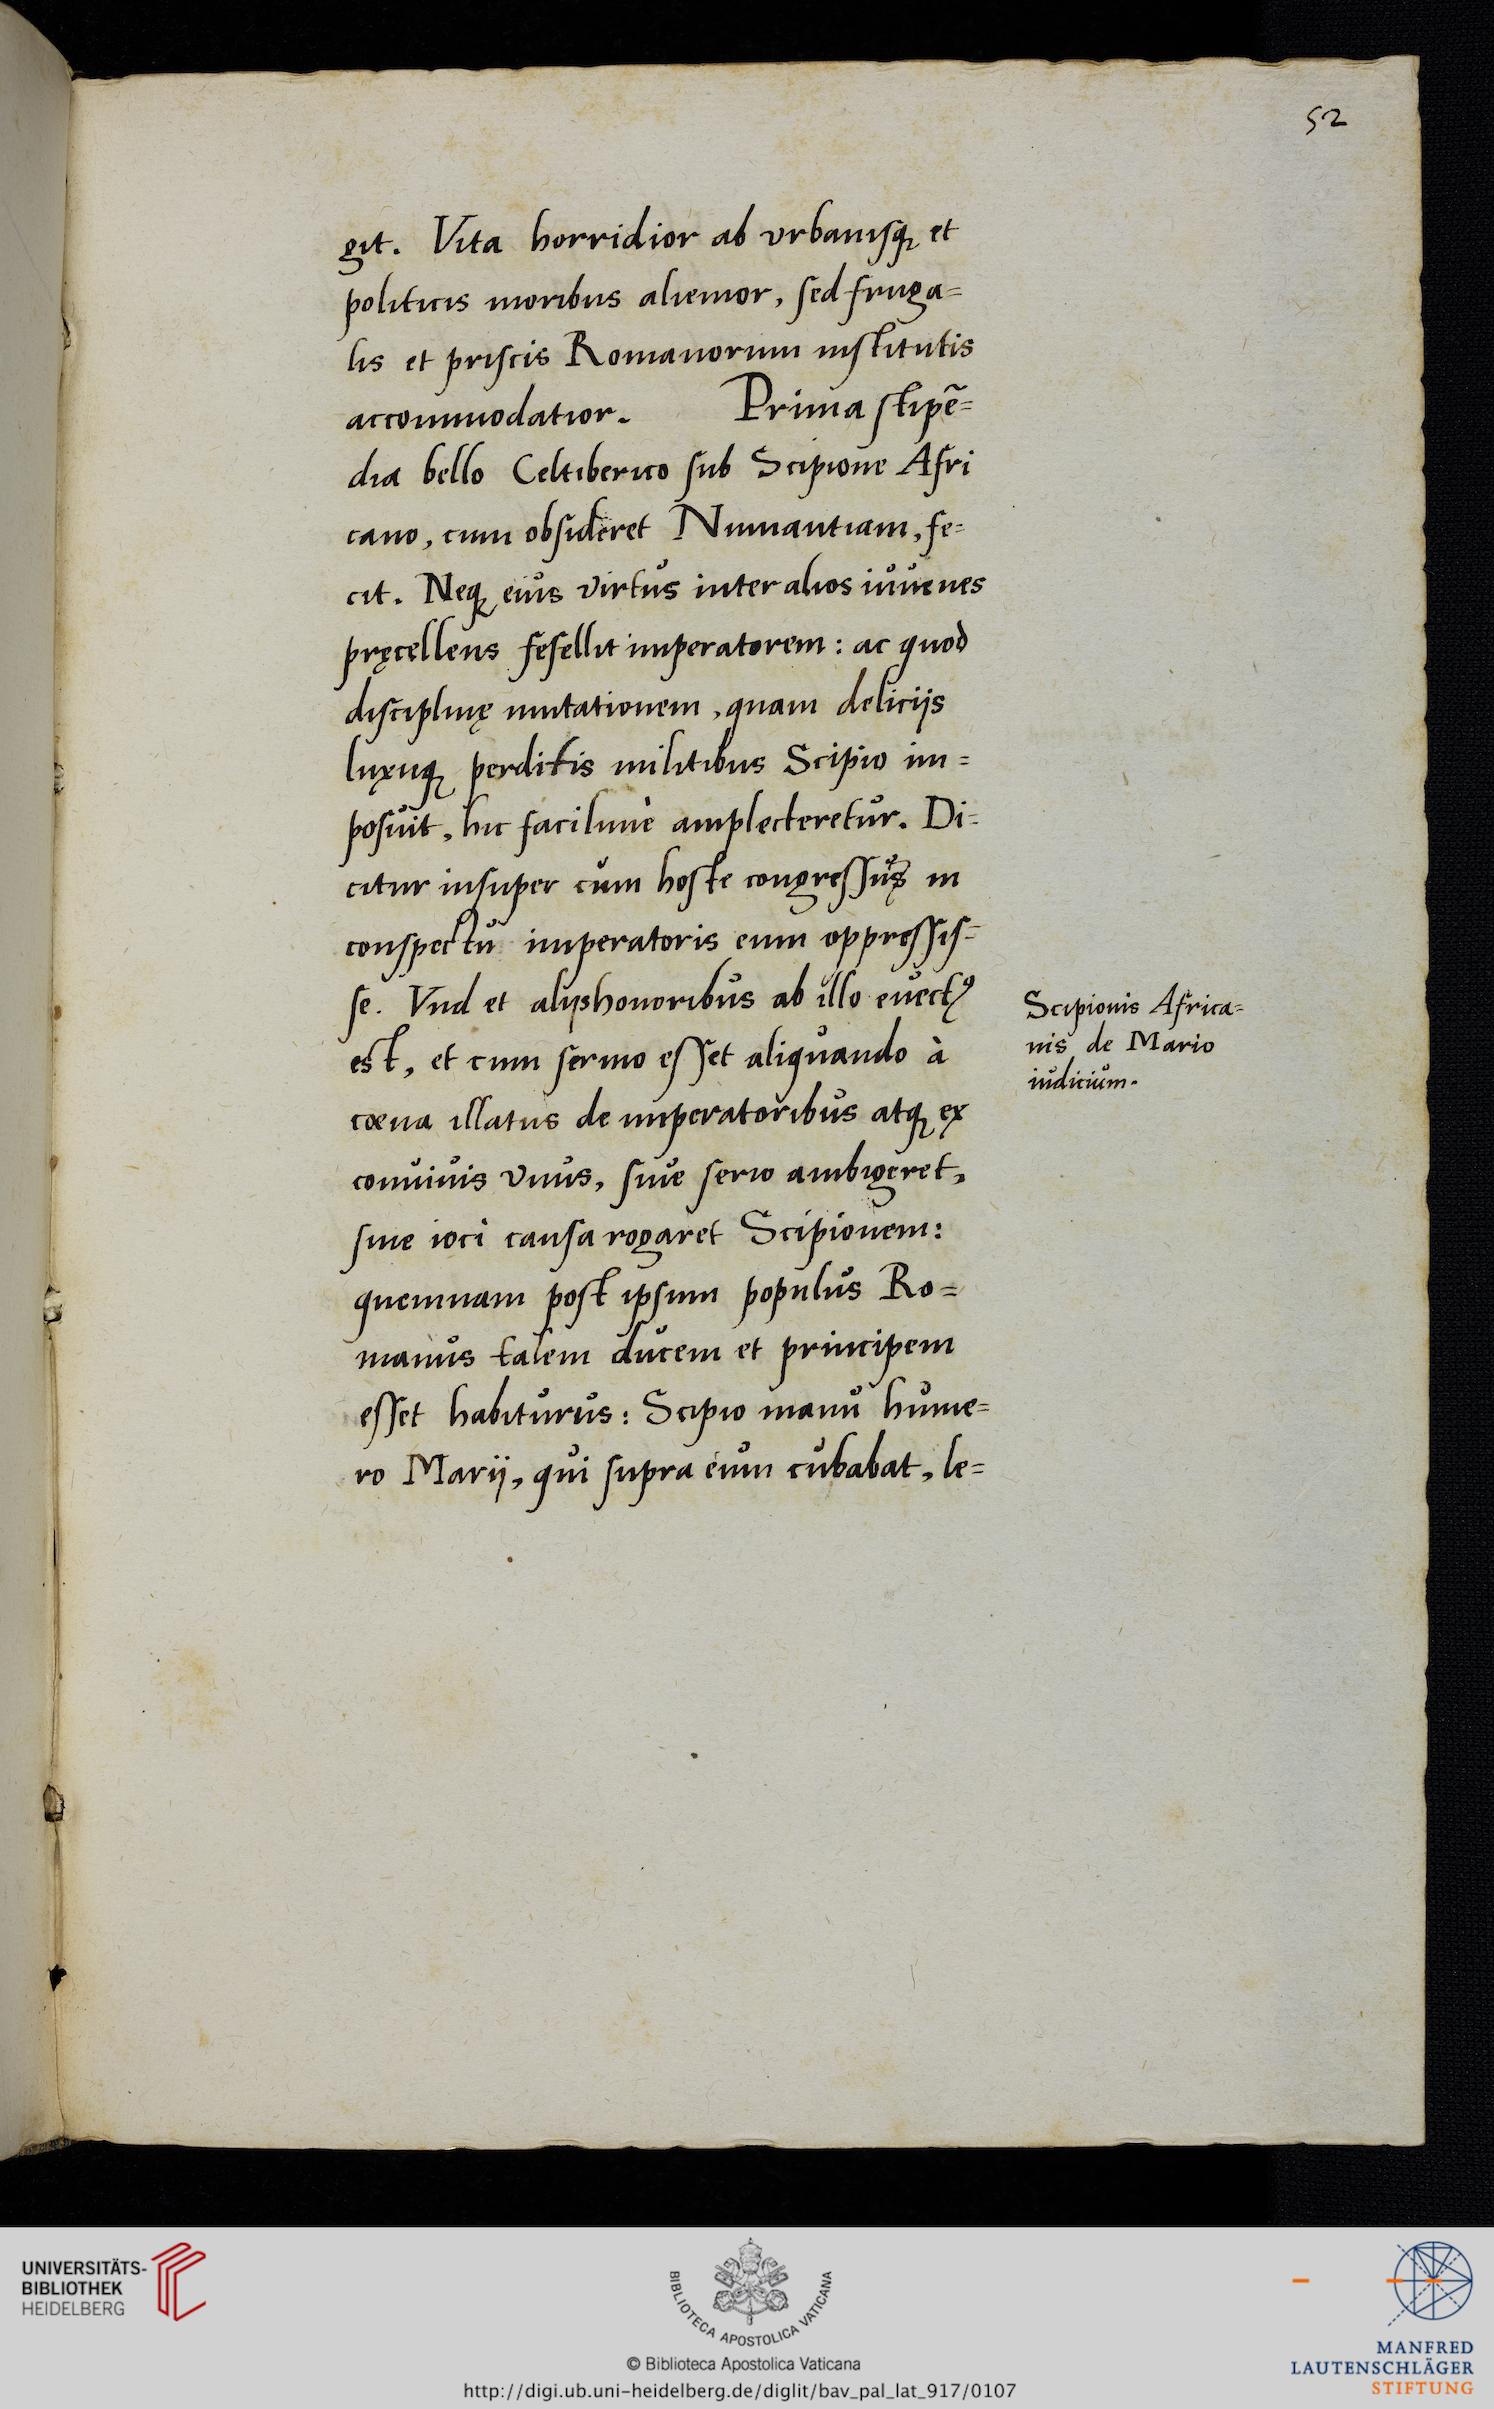 52
git. Vita horridior ab vrbanisq́; et
politicis moribus alienior, sed fruga=
lis et priscis Romanorum institutis
accommodatior. Prima stipẽ=
dia bello Celtiberico sub Scipione Afri
cano, cum obsideret Numantiam, fe=
cit. Neq; eius virtus inter alios iuuenes
pręcellens fefellit imperatorem: ac quod
disciplinę mutationem, quam delicijs
luxuq; perditis militibus Scipio im=
posuit, hic facilimè amplecteretur. Di=
citur insuper cum hoste congressus in
conspectu imperatoris eum oppressis=
se. Vnd et alijs honoribus ab illo euectꝰ
est, et cum sermo esset aliquando à
cœna illatus de imperatoribus atq; ex
conuiuis vnus, siue serio ambigeret,
siue ioci causa rogaret Scipionem:
quemnam post ipsum populus Ro=
manus talem ducem et principem
esset habiturus: Scipio manu hume=
ro Marij, qui supra eum cubabat, le=
Scipionis Africa=
nis de Mario
iudicium.
UNIVERSITÄTS-
BIBLIOTHEK
HEIDELBERG
BIBLIOTECA APOSTOLICA VATICANA
© Biblioteca Apostolica Vaticana
http://digi.ub.uni-heidelberg.de/diglit/bav_pal_lat_917/0107
MANFRED
LAUTENSCHLÄGER
STIFTUNG